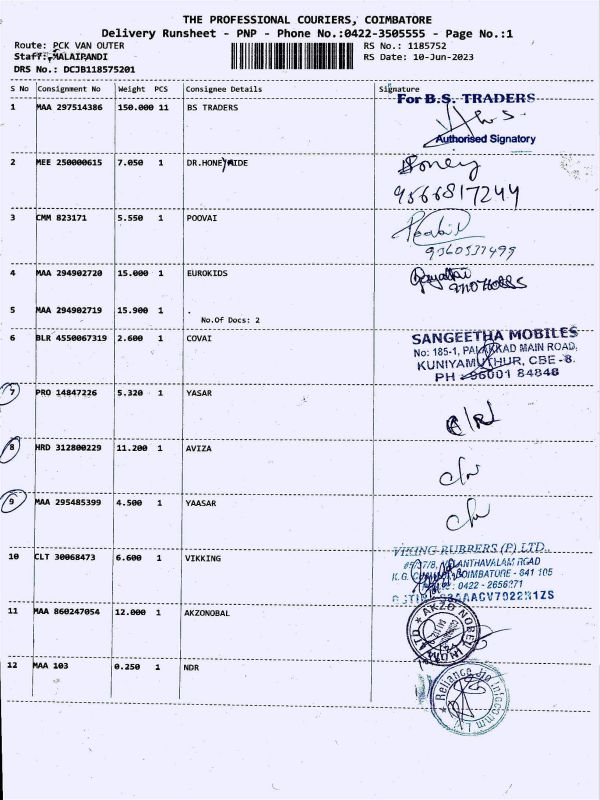 THE PROFESSIONAL COURIERS, COIMBATORE
Delivery Runsheet - PNP - Phone No.:0422-3505555 - Page No.:1
Route: PCK VAN OUTER RS No.: 1185752
Staff: MALAIPANDI RS Date: 10-Jun-2023
DRS No.: DCJB118575201
S No Consignment No Weight PCS Consignee Details Signature
1 MAA 297514386 150.000 11 BS TRADERS
For B.S. TRADERS
Authorised Signatory
2 MEE 250000615 7.050 1 DR.HONEYAIDE
Honey
9566817244
3 CMM 823171 5.550 1 POOVAI
9360537499
4 MAA 294902720 15.000 1 EUROKIDS
5 MAA 294902719 15.900 1 .
No.Of Docs: 2
6 BLR 4550067319 2.600 1 COVAI
SANGEETHA MOBILES
No: 185-1, PALAKKAD MAIN ROAD,
KUNIYAMUTHUR, CBE -8.
PH - 96001 84848
7 PRO 14847226 5.320 1 YASAR
8 HRD 312800229 11.200 1 AVIZA
9 MAA 295485399 4.500 1 YAASAR
10 CLT 30068473 6.600 1 VIKKING
VIKING RUBBERS (P) LTD.,
ROAD
COIMBATORE - 641 105
0422 - 2656271
11 MAA 860247054 12.000 1 AKZONOBAL
AKZO NOBEL
12 MAA 103 0.250 1 NDR
Reliance Jio Infocomm